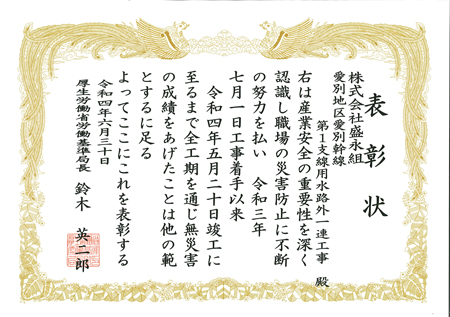 表彰状
株式会社盛永組
愛別地区愛別幹線
第1支線用水路外一連工事 殿
右は産業安全の重要性を深く
認識し職場の災害防止に不断
の努力を払い 令和三年
七月一日工事着手以来
令和四年五月二十日竣工に
至るまで全工期を通じ無災害
の成績をあげたことは他の範
とするに足る
よってここにこれを表彰する
令和四年六月三十日
厚生労働省労働基準局長 鈴木 英二郎